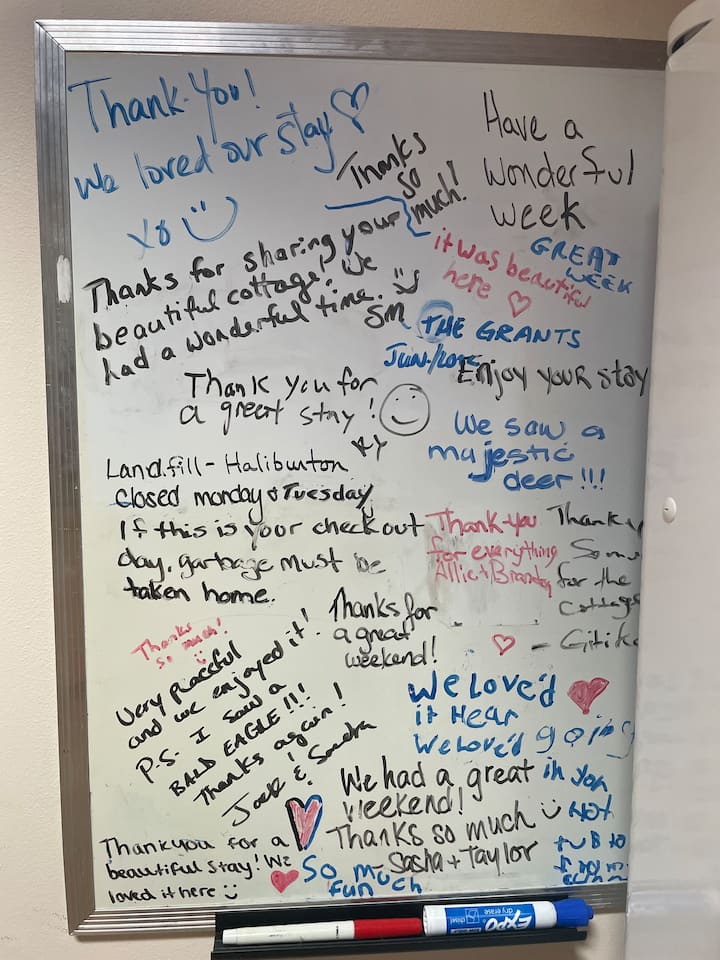 Thank-You!
We loved our stay
xo
Thanks
so
much!
Have a
wonderful
week
GREAT
WEEK
it was beautiful
here
Thanks for sharing your
beautiful cottage! We
had a wonderful time.
SM
THE GRANTS
Enjoy your stay
Thank you for
a great stay!
We saw a
majestic
deer!!!
Landfill - Haliburton
closed monday & Tuesday
If this is your checkout
day, garbage must be
taken home.
Thank-you
for everything
Allie +
Thank
So
for the
cottage
- Gitik
Thanks
so much!
Thanks for
a great
weekend!
Very peaceful
and we enjoyed it!
P.S. I saw a
BALD EAGLE!!!
Thanks again!
Jack & Sandra
We Love'd
it Hear
We Love'd going
in you
Hot
tub to
We had a great
weekend!
Thanks so much
- Sasha + Taylor
Thankyou for a
beautiful stay! We
loved it here
So much
fun
EXPO
dry erase